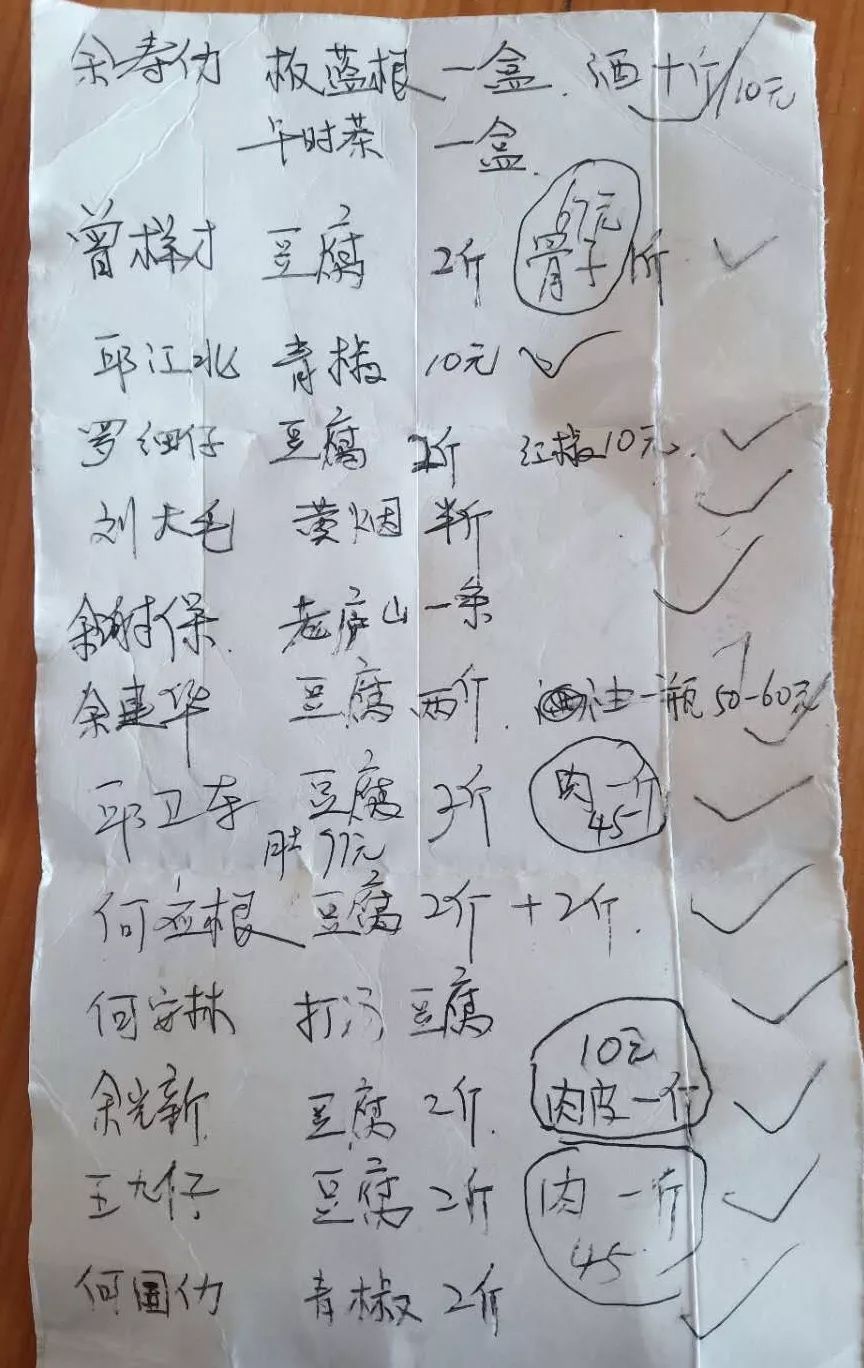 余寿仂 板蓝根 一盒. 酒十斤/10元
午时茶 一盒.
67元
曾样才 豆腐 2斤 骨子1斤
邱江北 青椒 10元
罗细仔 豆腐 2斤 红椒10元.
刘大毛 黄烟 半斤
余射保. 老庐山一条
余建华 豆腐 两斤. 油一瓶50-60元
邱卫东 豆腐 3斤 肉一斤
肚97元 45
何应根 豆腐 2斤+2斤.
何安林 打汤豆腐
10元
余光新 豆腐 2斤. 肉皮一斤
王九仔 豆腐 2斤 肉一斤
45
何国仂 青椒 2斤